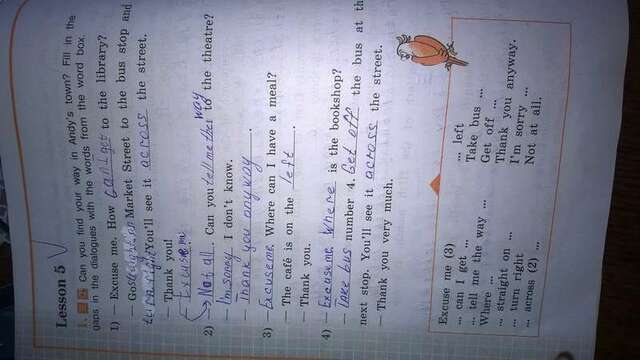 Lesson 5
1. Can you find your way in Andy's town? Fill in the
gaps in the dialogues with the words from the word box.
1) — Excuse me. How can I get to the library?
— Go straight on Market Street to the bus stop and
turn right. You'll see it across the street.
— Thank you!
Excuse m
2) — Not all. Can you tell me the way to the theatre?
— I'm sorry I don't know.
— Thank you anyway.
3) — Excuse me. Where can I have a meal?
— The café is on the left.
— Thank you.
4) — Excuse me. Where is the bookshop?
— Take bus number 4. Get off the bus at th
next stop. You'll see it across the street.
— Thank you very much.
Excuse me (3)
... can I get ...
... tell me the way ...
Where ...
... straight on ...
... turn right
... across (2) ...
... left
Take bus ...
Get off ...
Thank you anyway.
I'm sorry ...
Not at all.